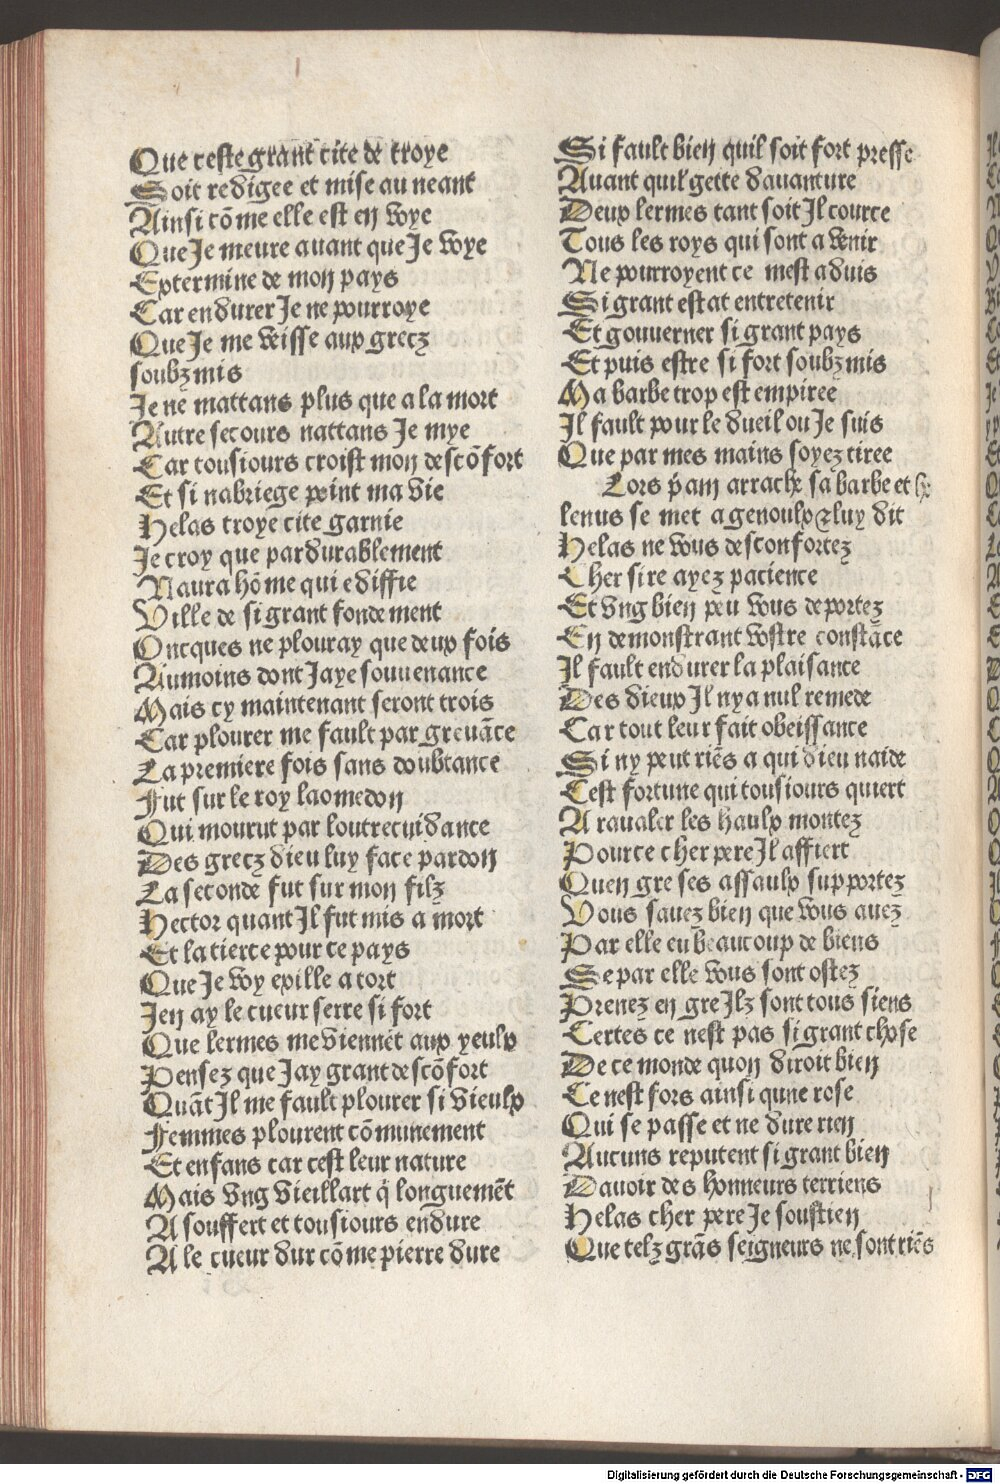 Que ceste grant cite de troye
Soit redigee et mise au neant
Ainsi cõme elle est en voye
Que Je meure auant que Je voye
Extermine de mon pays
Car endurer Je ne pourroye
Que Je me veisse aux grecz
soubzmis
Je ne mattans plus que a la mort
Autre secours nattans Je mye
Car tousiours croist mon descõfort
Et si nabriege point ma vie
Helas troye cite garnie
Je croy que pardurablement
Naura hõme qui ediffie
Ville de si grant fondement
Oncques ne plouray que deux fois
Aumoins dont Jaye souuenance
Mais cy maintenant seront trois
Car plourer me fault par greuãce
La premiere fois sans doubtance
Fut sur le roy laomedon
Qui mourut par loutrecuidance
Des grecz dieu luy face pardon
La seconde fut sur mon filz
Hector quant Il fut mis a mort
Et la tierce pour ce pays
Que Je voy exille a tort
Jen ay le cueur serre si fort
Que lermes me viennẽt aux yeulx
Pensez que Jay grant descõfort
Quãt Il me fault plourer si vieulx
Femmes plourent cõmunement
Et enfans car cest leur nature
Mais vng vieillart q̃ longuemẽt
A souffert et tousiours endure
A le cueur dur cõme pierre dure
Si fault bien quil soit fort presse
Auant quil gette dauanture
Deux lermes tant soit Il cource
Tous les roys qui sont a venir
Ne pourroyent ce mest aduis
Si grant estat entretenir
Et gouuerner si grant pays
Et puis estre si fort soubzmis
Ma barbe trop est empiree
Il fault pour le dueil ou Je suis
Que par mes mains soyez tiree
Lors p̃am arrache sa barbe et he
lenus se met a genoulx ⁊ luy dit
Helas ne vous desconfortez
Cher sire ayez pacience
Et vng bien peu vous deportez
En demonstrant vostre constãce
Il fault endurer la plaisance
Des dieux Il nya nul remede
Car tout leur fait obeissance
Si ny peut riẽs a qui dieu naide
Cest fortune qui tousiours quiert
A raualer les haulx montez
Pource cher pere Il affiert
Quen gre ses assaulx supportez
Vous sauez bien que vous auez
Par elle eu beaucoup de biens
Se par elle vous sont ostez
Prenez en gre Ilz sont tous siens
Certes ce nest pas si grant chose
De ce monde quon diroit bien
Ce nest fors ainsi qune rose
Qui se passe et ne dure rien
Aucuns reputent si grant bien
Dauoir des honneurs terriens
Helas cher pere Je soustien
Que telz grãs seigneurs ne sont riẽs
Digitalisierung gefördert durch die Deutsche Forschungsgemeinschaft - DFG